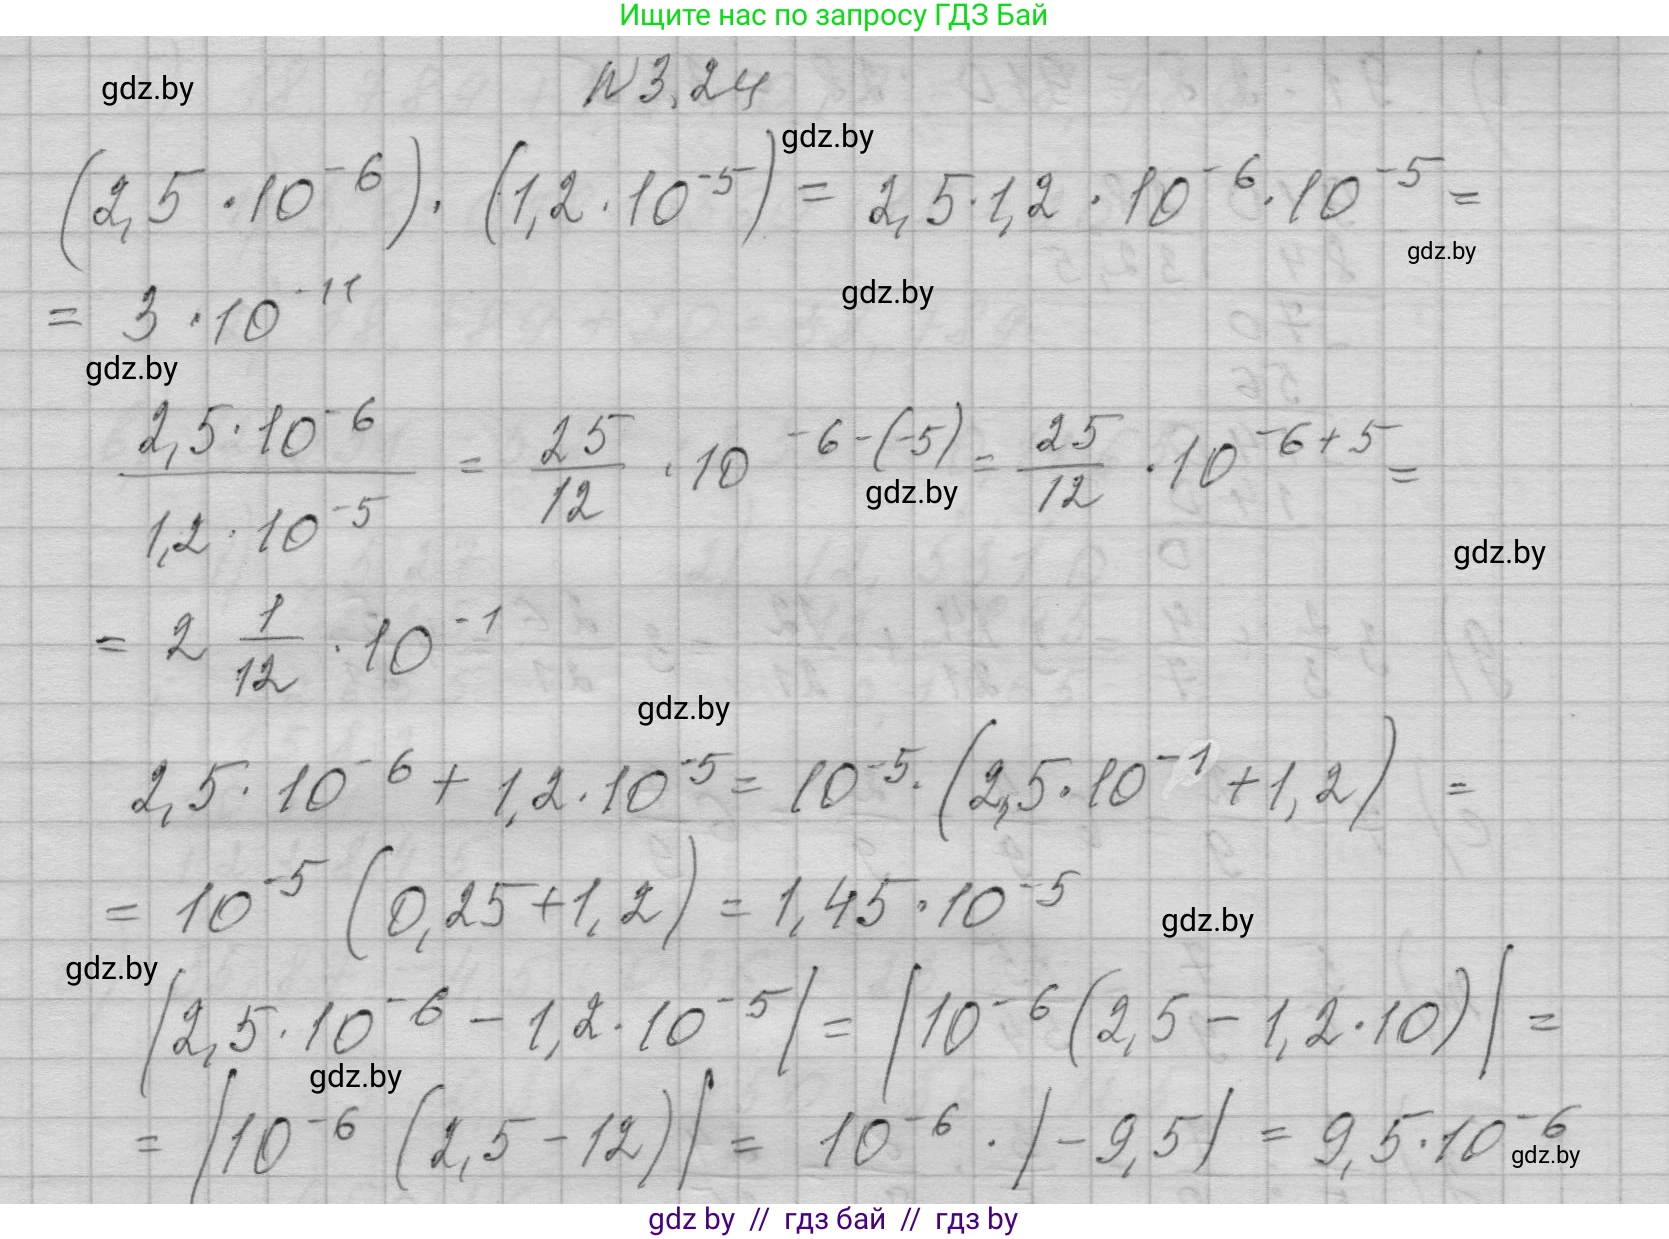 Ищите нас по запросу ГДЗ Бай
N 3.24
gdz.by
gdz.by
(2,5 · 10^-6) · (1,2 · 10^-5) = 2,5 · 1,2 · 10^-6 · 10^-5 =
gdz.by
= 3 · 10^-11
gdz.by
gdz.by
2,5 · 10^-6 / 1,2 · 10^-5 = 25/12 · 10^-6-(-5) = 25/12 · 10^-6+5 =
gdz.by
gdz.by
= 2 1/12 · 10^-1
gdz.by
2,5 · 10^-6 + 1,2 · 10^-5 = 10^-5 · (2,5 · 10^-1 + 1,2) =
= 10^-5 (0,25 + 1,2) = 1,45 · 10^-5
gdz.by
gdz.by
|2,5 · 10^-6 - 1,2 · 10^-5| = |10^-6 (2,5 - 1,2 · 10)| =
gdz.by
= |10^-6 (2,5 - 12)| = 10^-6 · |-9,5| = 9,5 · 10^-6
gdz.by
gdz by // гдз бай // гдз by